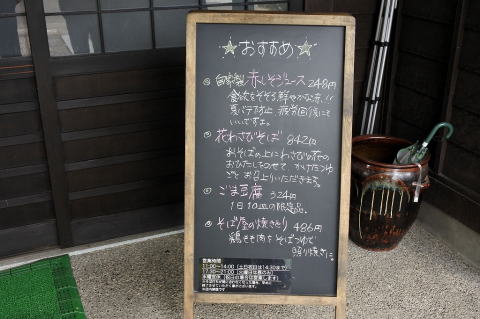 ☆おすすめ☆
◎自家製赤しそジュース 248円
食欲をそそる鮮やかな赤!!
夏バテ防止、疲労回復にも
いいですよ。
◎花わさびそば 842円
おそばの上にわさびの花の
おひたしをのせて、かけたつゆ
でお召し上りいただきます。
◎ごま豆腐 324円
1日10皿の限定品。
◎そば屋の焼きとり 486円
鶏もも肉をそばつゆで
照り焼きに。
営業時間
11:00〜14:00(土日祝日は14:30まで)